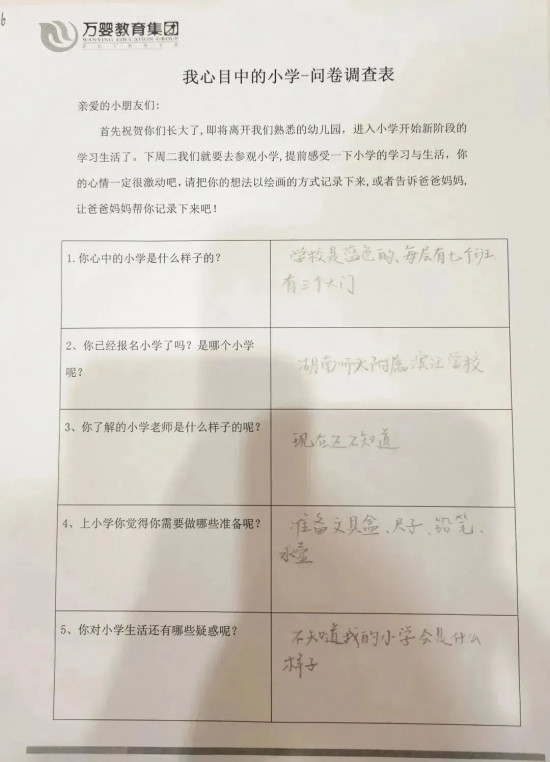 万婴教育集团
WANYING EDUCATION GROUP
我心目中的小学-问卷调查表
亲爱的小朋友们:
首先祝贺你们长大了,即将离开我们熟悉的幼儿园，进入小学开始新阶段的
学习生活了。下周二我们就要去参观小学,提前感受一下小学的学习与生活，你
的心情一定很激动吧,请把你的想法以绘画的方式记录下来,或者告诉爸爸妈妈,
让爸爸妈妈帮你记录下来吧！
1.你心中的小学是什么样子的？
学校是蓝色的、每层有七个班.
有三个大门
2、你已经报名小学了吗？是哪个小学
呢？
湖南师大附属滨江学校
3、你了解的小学老师是什么样子的呢？
现在还不知道
4、上小学你觉得你需要做哪些准备呢？
准备文具盒、尺子、铅笔、
水壶
5、你对小学生活还有哪些疑惑呢？
不知道我的小学会是什么
样子